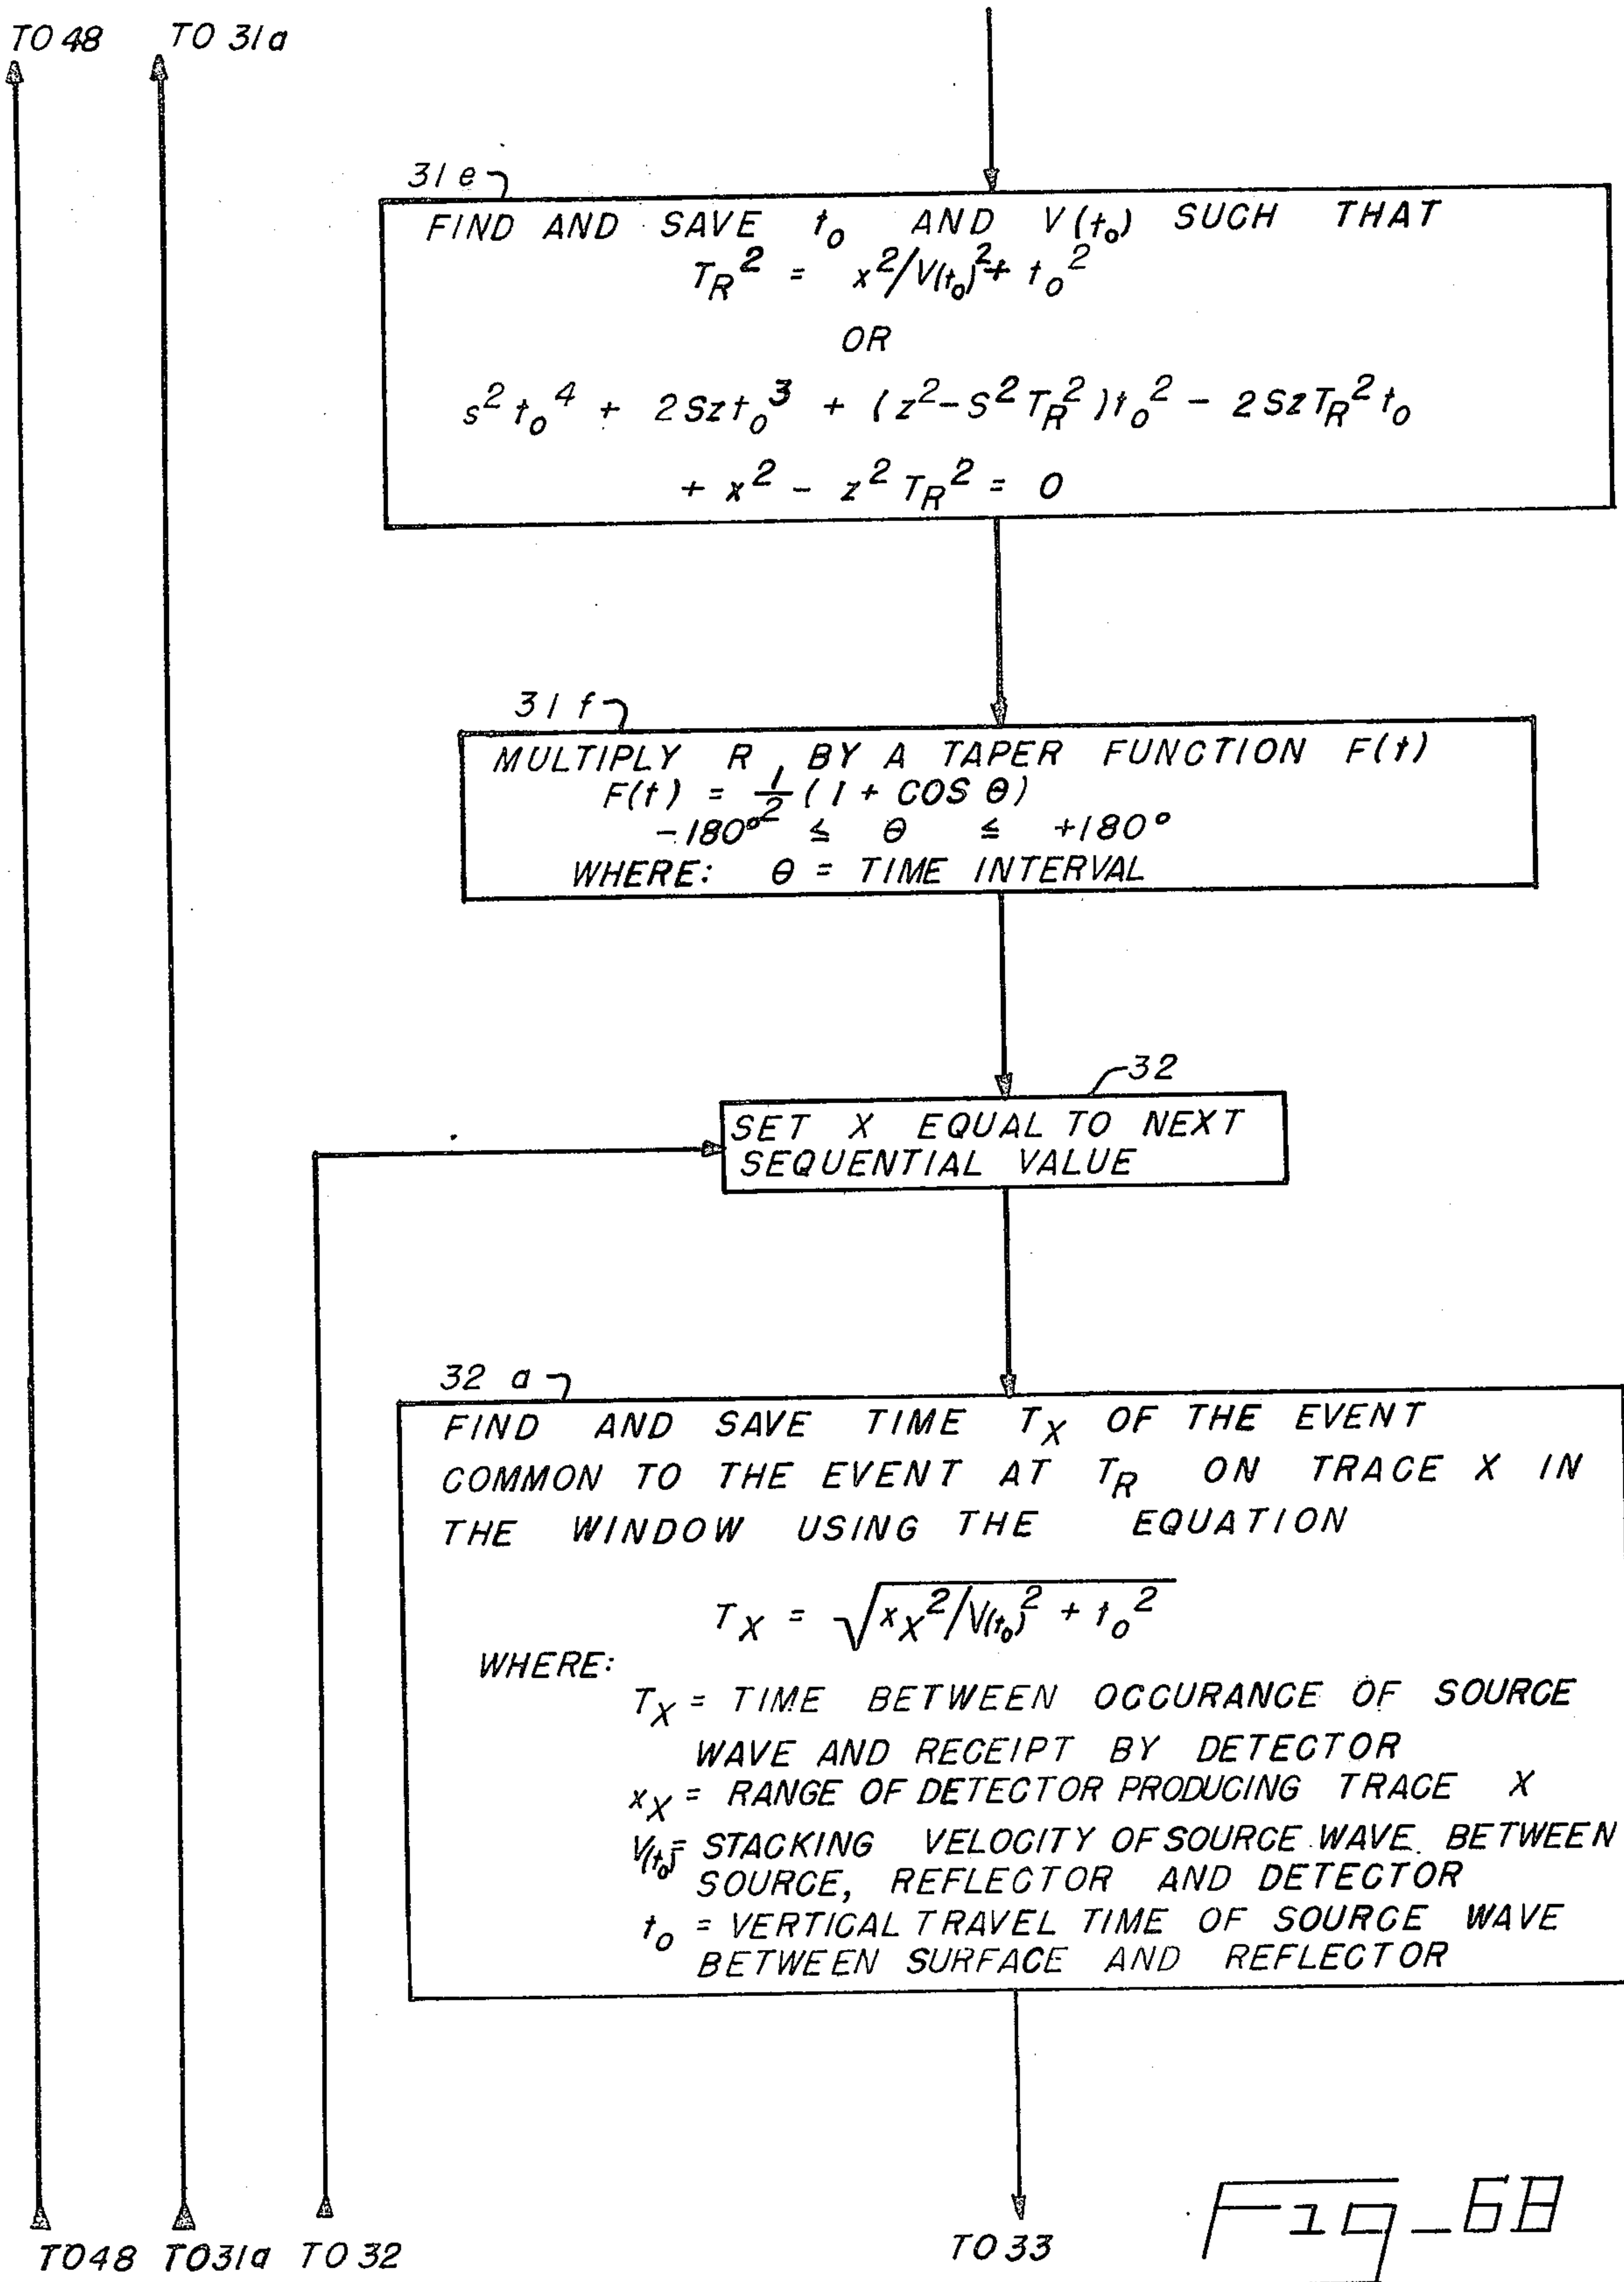 TO 48 TO 31a
31e
FIND AND SAVE t₀ AND V(t₀) SUCH THAT
T_R² = x²/V(t₀)² + t₀²
OR
s² t₀⁴ + 2Szt₀³ + (z²-S²T_R²)t₀² - 2SzT_R² t₀
+ x² - z² T_R² = 0
31f
MULTIPLY R BY A TAPER FUNCTION F(t)
F(t) = 1/2 (1 + COS θ)
-180° ≤ θ ≤ +180°
WHERE: θ = TIME INTERVAL
32
SET X EQUAL TO NEXT
SEQUENTIAL VALUE
32 a
FIND AND SAVE TIME T_X OF THE EVENT
COMMON TO THE EVENT AT T_R ON TRACE X IN
THE WINDOW USING THE EQUATION
T_X = √(x_X²/V(t₀)² + t₀²)
WHERE:
T_X = TIME BETWEEN OCCURANCE OF SOURCE
WAVE AND RECEIPT BY DETECTOR
x_X = RANGE OF DETECTOR PRODUCING TRACE X
V(t₀) = STACKING VELOCITY OF SOURCE WAVE BETWEEN
SOURCE, REFLECTOR AND DETECTOR
t₀ = VERTICAL TRAVEL TIME OF SOURCE WAVE
BETWEEN SURFACE AND REFLECTOR
TO48 TO31a TO 32
TO 33
Fig_6B